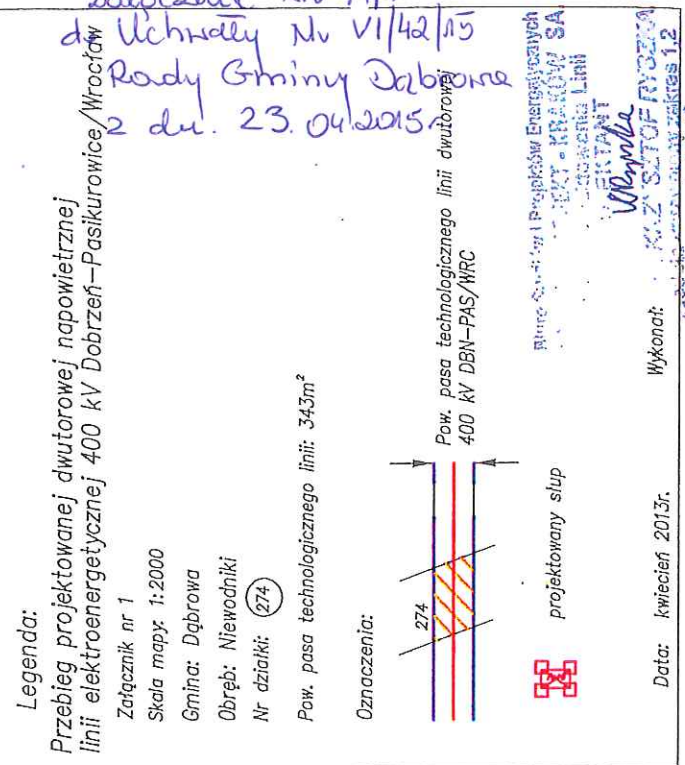 do Uchwały Nr VI/42/15
Rady Gminy Dąbrowa
z dn. 23.04.2015r.
Legenda:
Przebieg projektowanej dwutorowej napowietrznej
linii elektroenergetycznej 400 kV Dobrzeń-Pasikurowice/Wrocław
Załącznik nr 1
Skala mapy: 1:2000
Gmina: Dąbrowa
Obręb: Niewodniki
Nr działki: 274
Pow. pasa technologicznego linii: 343m²
Oznaczenia:
274
Pow. pasa technologicznego linii dwutorowej
400 kV DBN-PAS/WRC
projektowany słup
Data: kwiecień 2013r.
Wykonał:
Biuro Projektów Energetycznych
KRAKÓW SA
Linii
zakres 1,2